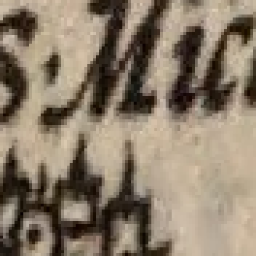 S. Mic